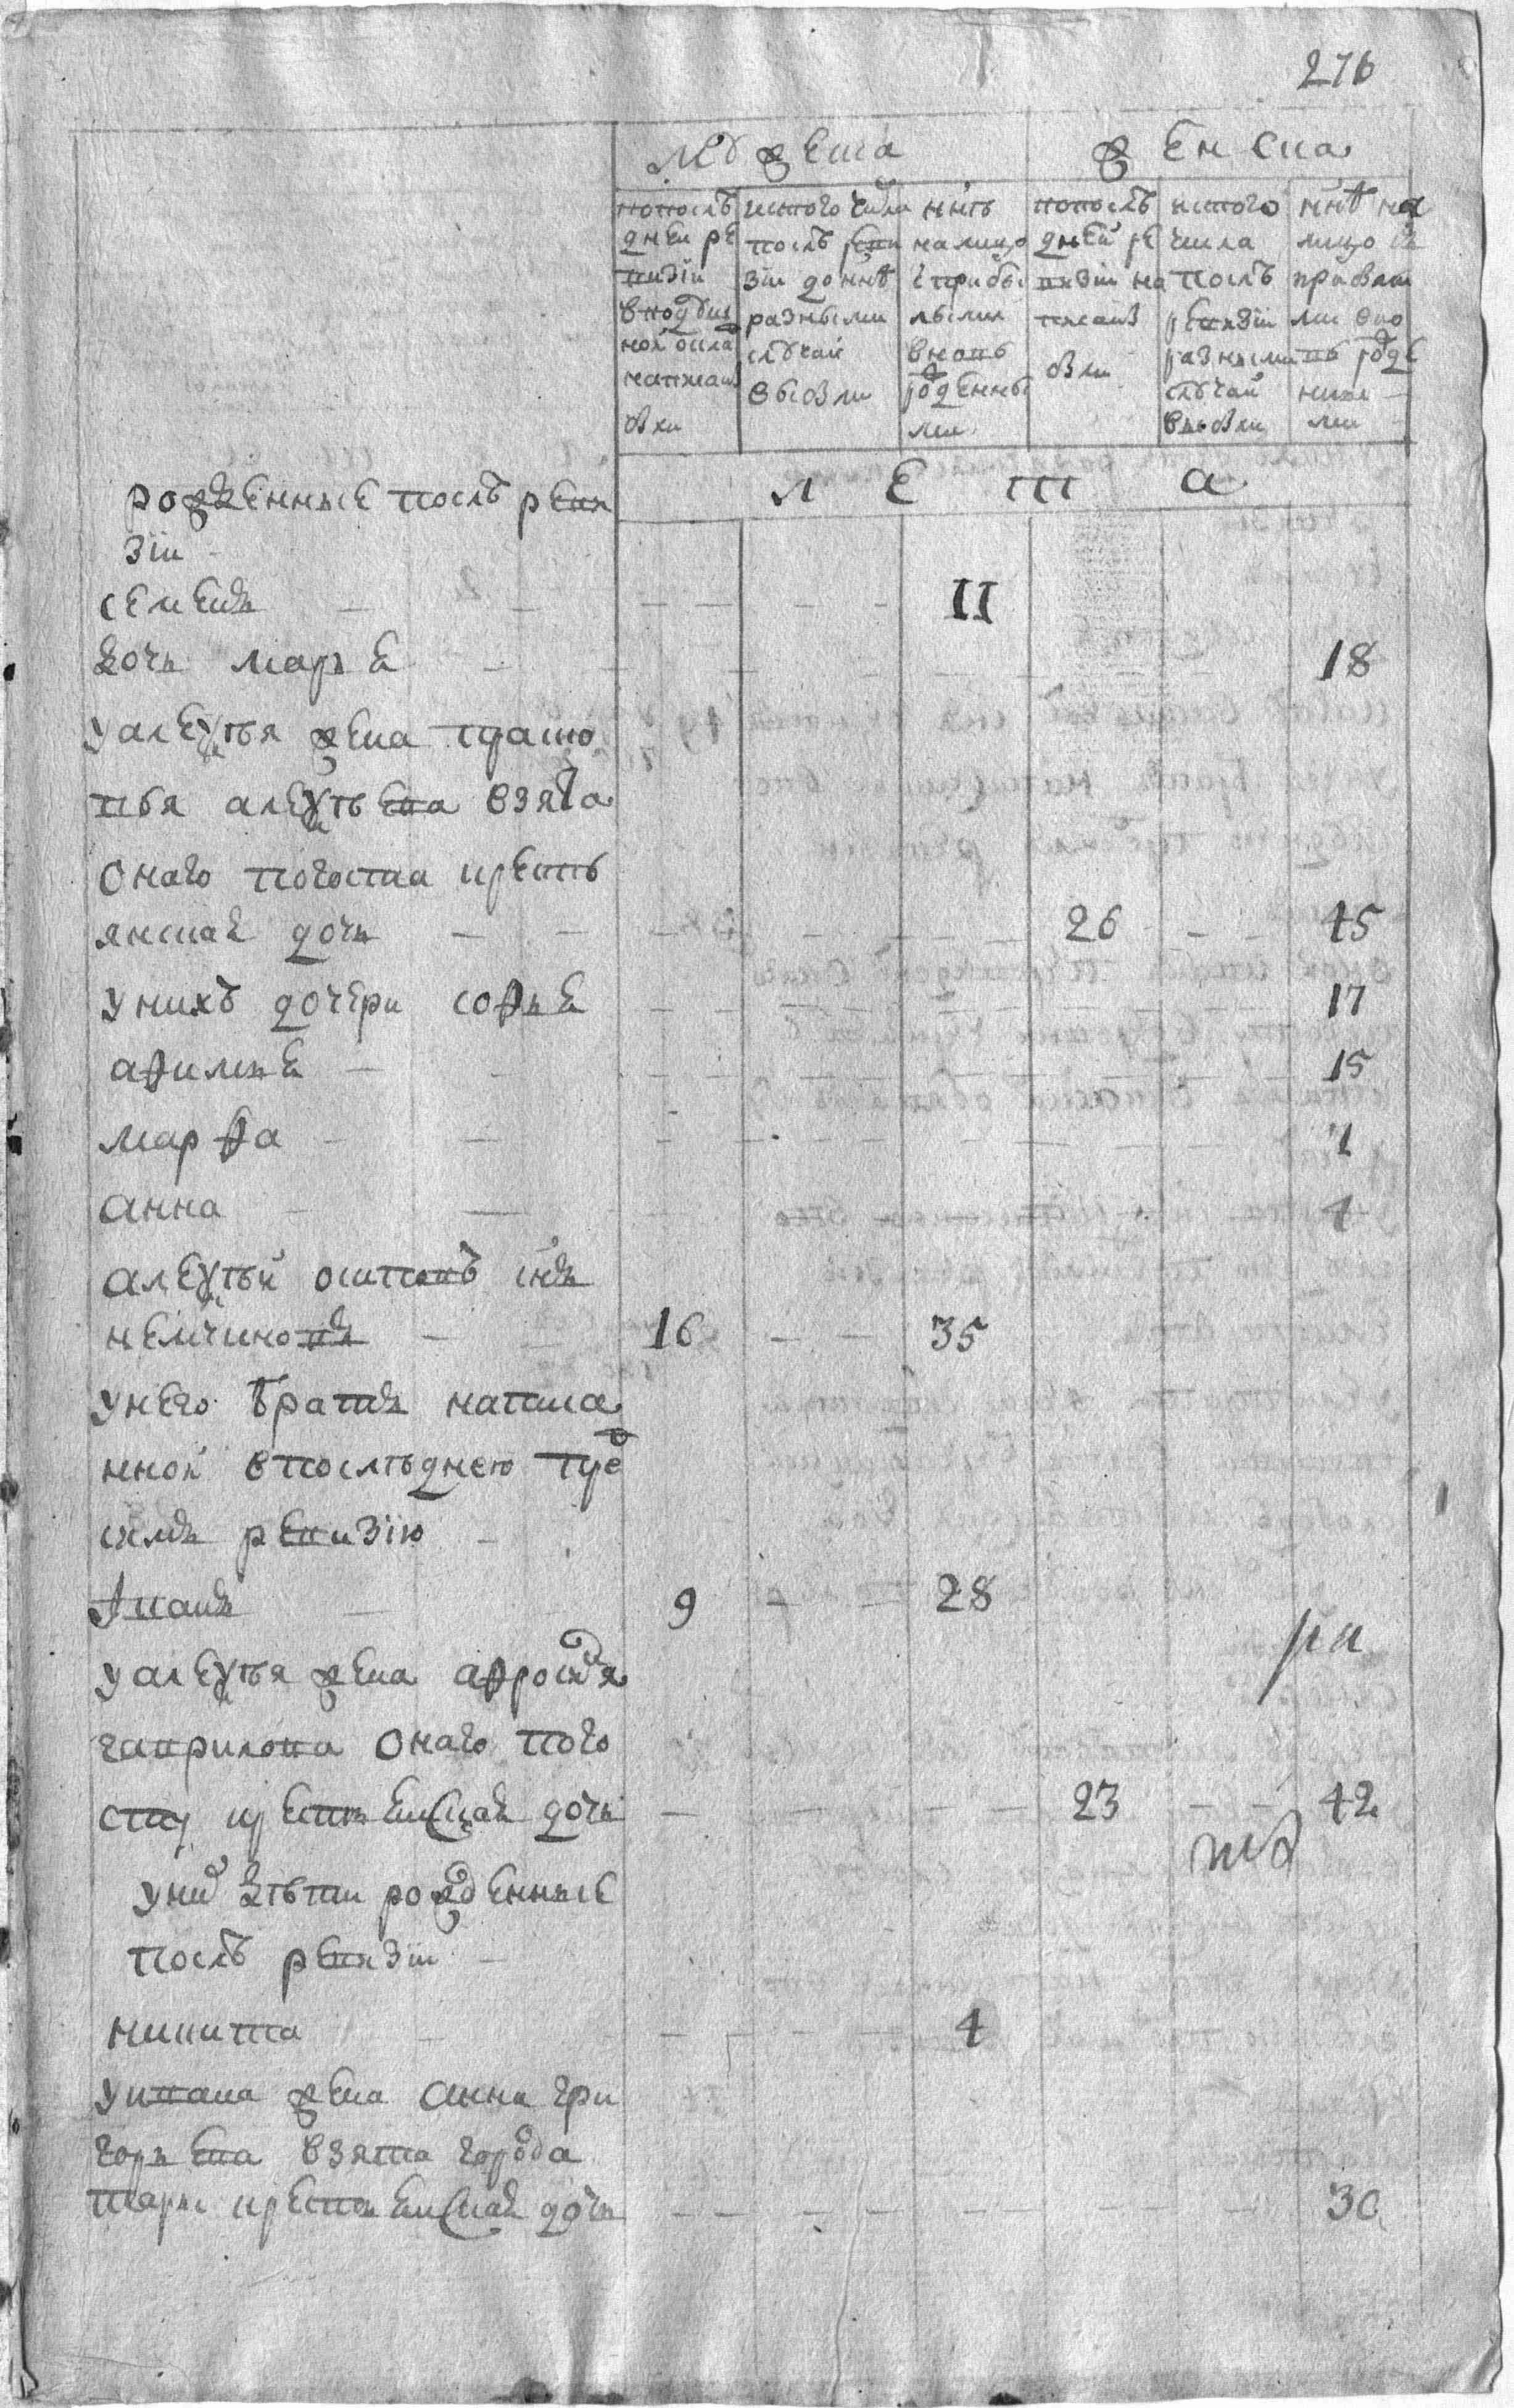 276
мужеска
женска
попослѣ
дней ре
визіи
вподуш
ной окла
написаны
были
истого числа
послѣ реви
зіи донне
разными
случаи
выбыли
ннѣ
налицо
с прибы
лыми
вновь
рожденны
ми
попослѣ
дней ре
визіи на
писаны
были
истого
числа
послѣ
ревизіи
разными
случаи
выбыли
ннѣ на
лицо съ
прибыл
ми вно
вь роде
ными
л е т а
рожденные послѣ реви
зіи
семенъ 11
дочь марья 18
уалексѣя жена
алексѣева взята
онаго погоста кресть
янская дочь 26 45
унихъ дочери софья 17
афимья 15
марфа
анна 4
алексѣй осиповъ снъ
немчиновъ 16 35
унего братъ написа
нной впоследнею пре
ревизію
иванъ 9 28
уалексѣя жена афросинья
гаврилова онаго пого
ста крестьенская дочь 23 42
уних дѣти рожденные
послѣ ревизіи
никита 4
уивана жена анна гри
горьева взята города
тары крестьенская дочь 30